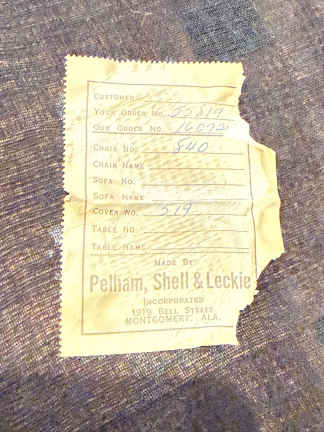 CUSTOMER
YOUR ORDER NO. 55819
OUR ORDER NO. 16092
CHAIR NO. 840
CHAIR NAME
SOFA NO.
SOFA NAME
COVER NO. 519
TABLE NO.
TABLE NAME
MADE BY
Pelham, Shell & Leckie
INCORPORATED
1919 BELL STREET
MONTGOMERY, ALA.